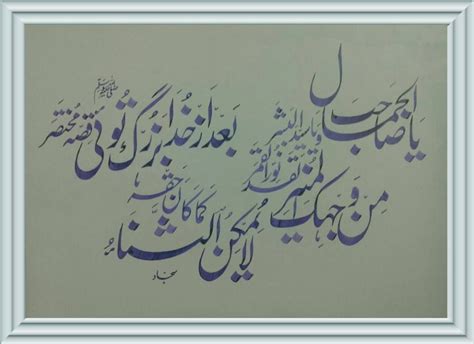 یا صاحب الجمال و یا سید البشر
من وجہک المنیر لقد نور القمر
لا یمکن الثناء کما کان حقہ
بعد از خدا بزرگ توئی قصہ مختصر
ﷺ
سجاد